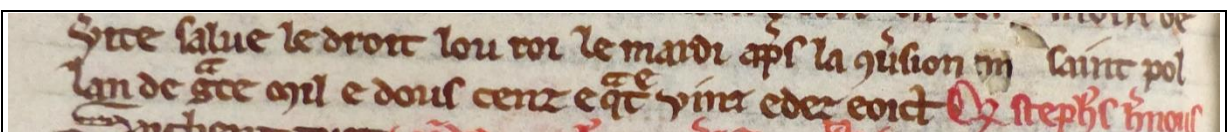 vite salue le droit lou roi le mardi ap̃s la ꝯũsion saint pol
lan de gᵃce mil e dous cenz e qᵃtͤ vinz e dez e oict steph̃s